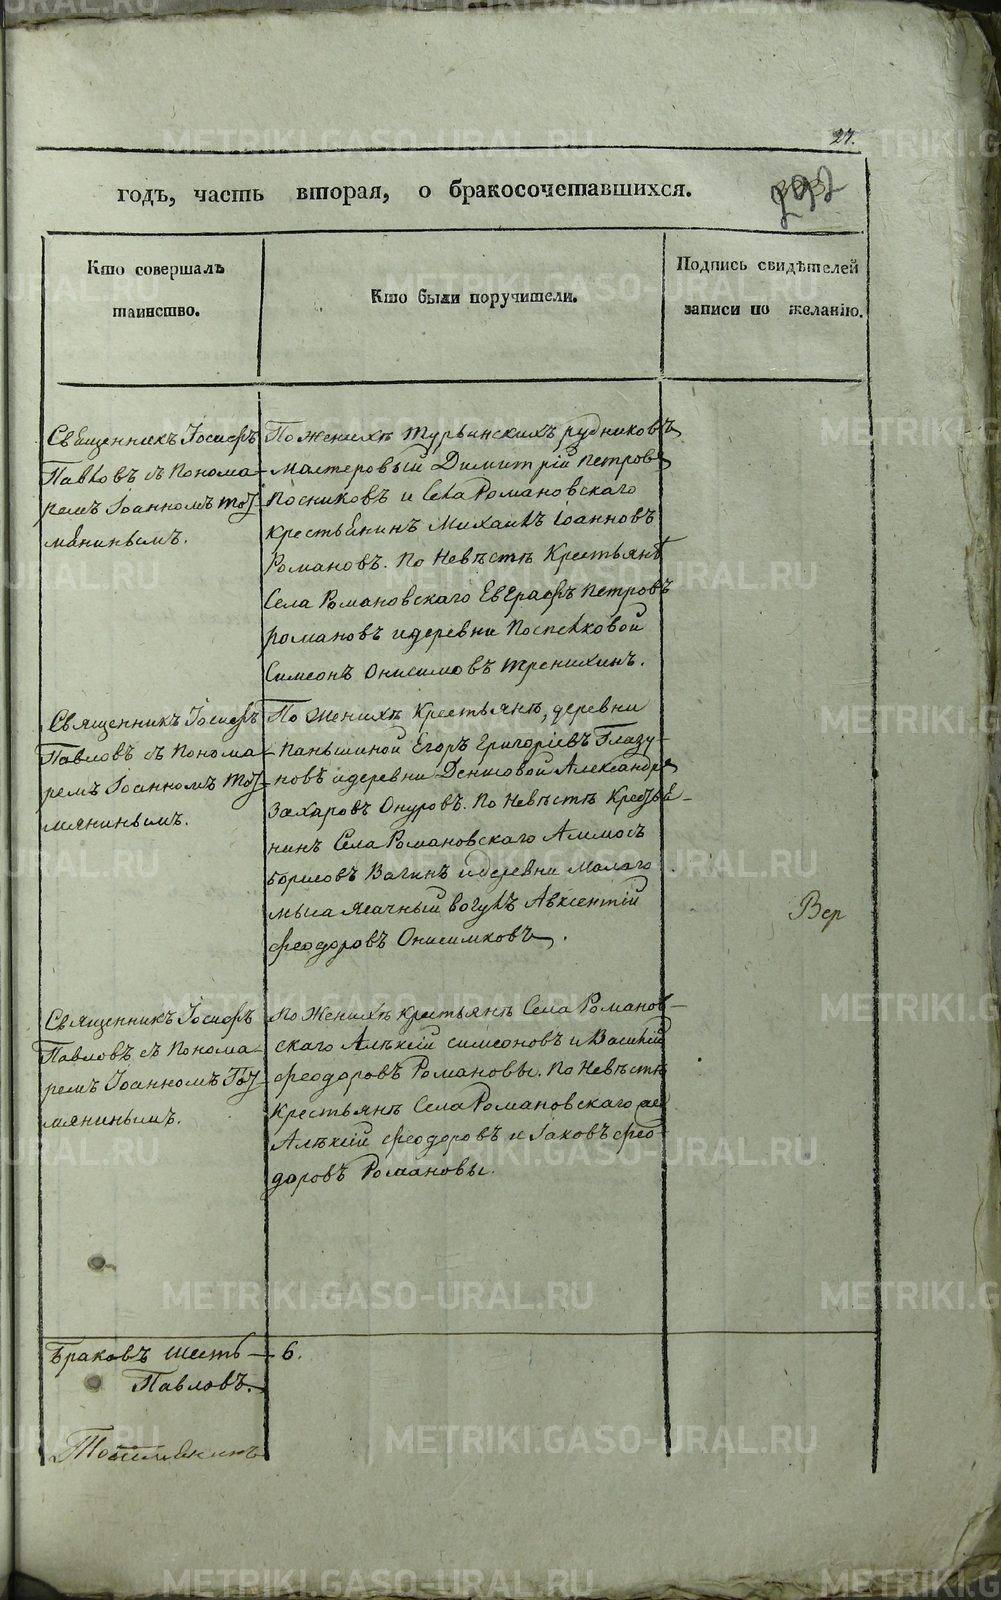 27.
годъ, часть вторая, о бракосочетавшихся.
292
Кто совершалъ
таинство.
Кто были поручители.
Подпись свидѣтелей
записи по желанію.
Священникъ Іосифъ
Павловъ съ Понома-
ремъ Іоанномъ Тот-
мянинымъ.
По Женихѣ Турьинскихъ рудниковъ
мастеровый Димитрій Петровъ
Посниковъ и Села Романовскаго
крестьянинъ Михаилъ Іоанновъ
Романовъ. По Невѣстѣ Крестьянѣ
Села Романовскаго Евграфъ Петровъ
Романовъ и деревни Поспелковой
Симеонъ Онисимовъ Тренихинъ.
Священникъ Іосифъ
Павловъ съ Понома-
ремъ Іоанномъ Тот-
мянинымъ.
По Женихѣ Крестьянѣ, деревни
Паньшиной Егоръ Григоріевъ Глазу-
новъ и деревни Денисовой Александръ
Захаровъ Онуровъ. По Невѣстѣ Крестья-
нинъ Села Романовскаго Аммосъ
Борисовъ Вагинъ и деревни Малаго
мыса Ясачный вогулъ Авксентій
Феодоровъ Онисимковъ.
Вер
Священникъ Іосифъ
Павловъ съ Понома-
ремъ Іоанномъ Тот-
мянинымъ.
По Женихѣ крестьянѣ Села Романов-
скаго Алѣксій Симеоновъ и Василій
Феодоровъ Романовы. По Невѣстѣ
Крестьянѣ Села Романовскаго
Алѣксій Феодоровъ и Іаковъ Фео-
доровъ Романовы.
Браковъ шесть — 6.
Павловъ.
Тотмянинъ
METRIKI.GASO-URAL.RU